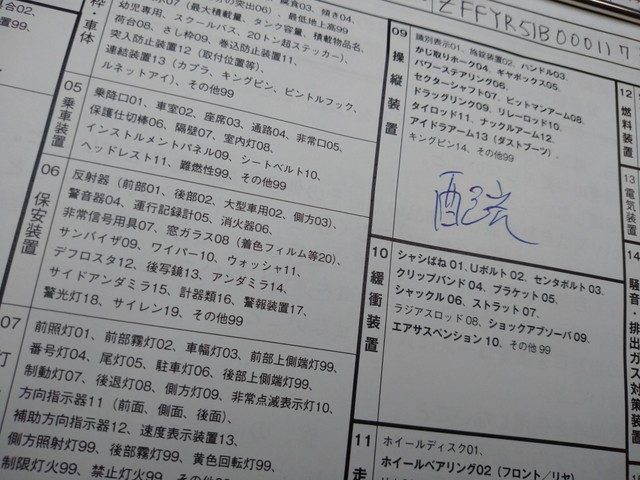 ZFFYR51B000117
枠・車体
荷台08、さし枠09、巻込防止装置11、
突入防止装置12（取付位置等）、
連結装置13（カプラ、キングピン、ピントルフック、
ルネットアイ）、その他99
05
乗車装置
乗降口01、車室02、座席03、通路04、非常口05、
保護仕切棒06、隔壁07、室内灯08、
インストルメントパネル09、シートベルト10、
ヘッドレスト11、難燃性99、その他99
06
保安装置
反射器（前部01、後部02、大型車用02、側方03）、
警音器04、運行記録計05、消火器06、
非常信号用具07、窓ガラス08（着色フィルム等20）、
サンバイザ09、ワイパー10、ウォッシャ11、
デフロスタ12、後写鏡13、アンダミラ14、
サイドアンダミラ15、計器類16、警報装置17、
警光灯18、サイレン19、その他99
07
灯
前照灯01、前部霧灯02、車幅灯03、前部上側端灯99、
番号灯04、尾灯05、駐車灯06、後部上側端灯99、
制動灯07、後退灯08、側方灯09、非常点滅表示灯10、
方向指示器11（前面、側面、後面）、
補助方向指示器12、速度表示装置13、
側方照射灯99、後部霧灯99、黄色回転灯99、
制限灯火99、禁止灯火99、その他99
09
操縦装置
識別表示01、施錠装置02、ハンドル03、
かじ取りホーク04、ギヤボックス05、
パワーステアリング06、
セクターシャフト07、ピットマンアーム08、
ドラッグリンク09、リレーロッド10、
タイロッド11、ナックルアーム12、
アイドラアーム13（ダストブーツ）、
キングピン14、その他99
10
緩衝装置
シャシばね01、Uボルト02、センタボルト03、
クリップバンド04、ブラケット05、
シャックル06、ストラット07、
ラジアスロッド08、ショックアブソーバ09、
エアサスペンション10、その他99
11
走
ホイールディスク01、
ホイールベアリング02（フロント／リヤ
12
燃料装置
13
電気装置
14
騒音・排出ガス対策装置